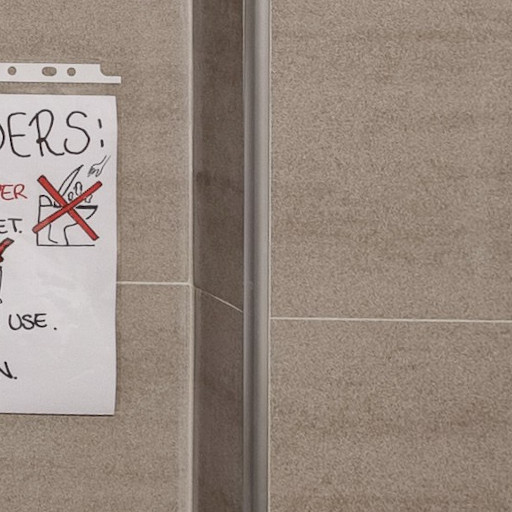 DERS:
ER
ET.
USE.
N.